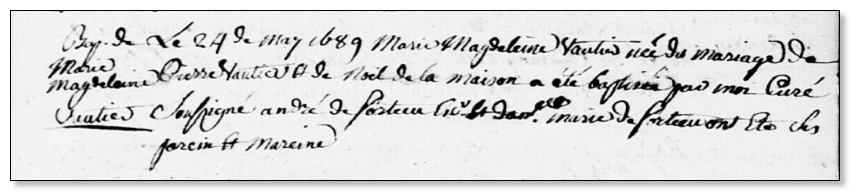 Bap. de Le 24 de may 1689 Marie Magdeleine Vautier née du mariage de
Marie Magdeleine Pierre Vautier et de Noil de la maison a été baptisée par moi Curé
Vautier soussigné andré de forteau et dam.elle marie de forteau ont été les
parein et mareine